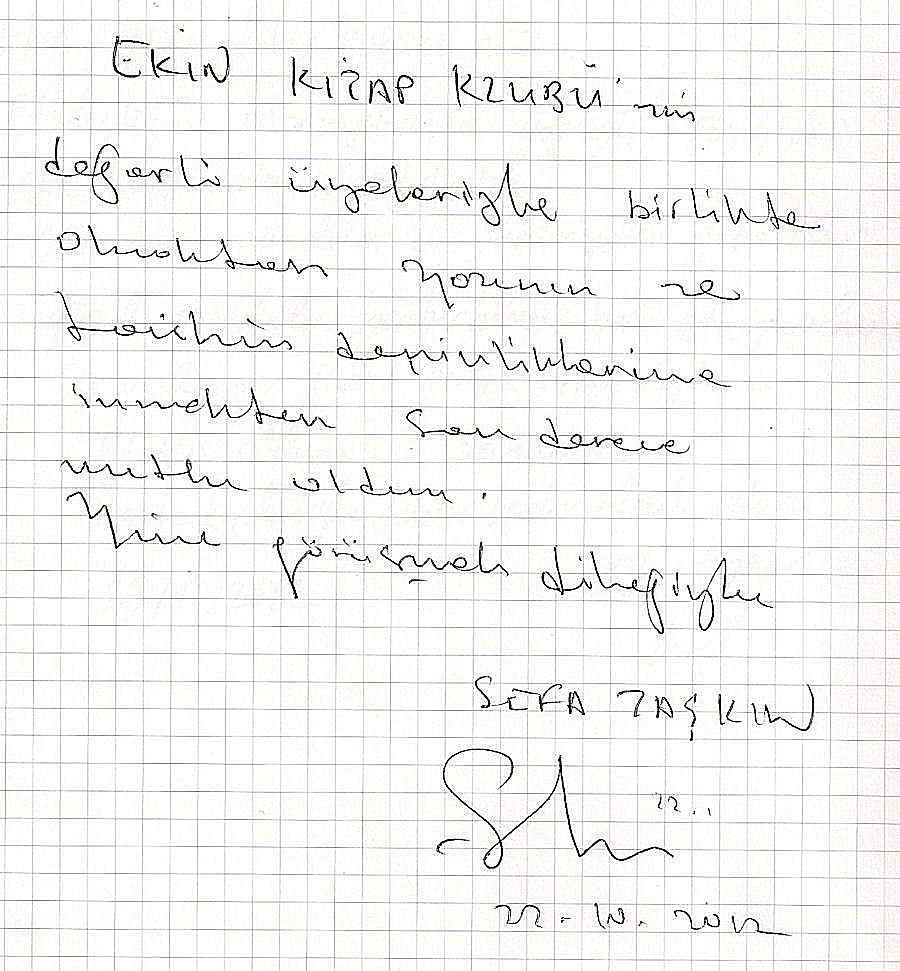 EKİN KİTAP KLUBÜ'nün
değerli üyeleriyle birlikte
olmaktan yorumun ve
tarihin derinliklerine
inmekten son derece
mutlu oldum.
Yine görüşmek dileğiyle
SEFA TAŞKIN
22..
22.10.2012